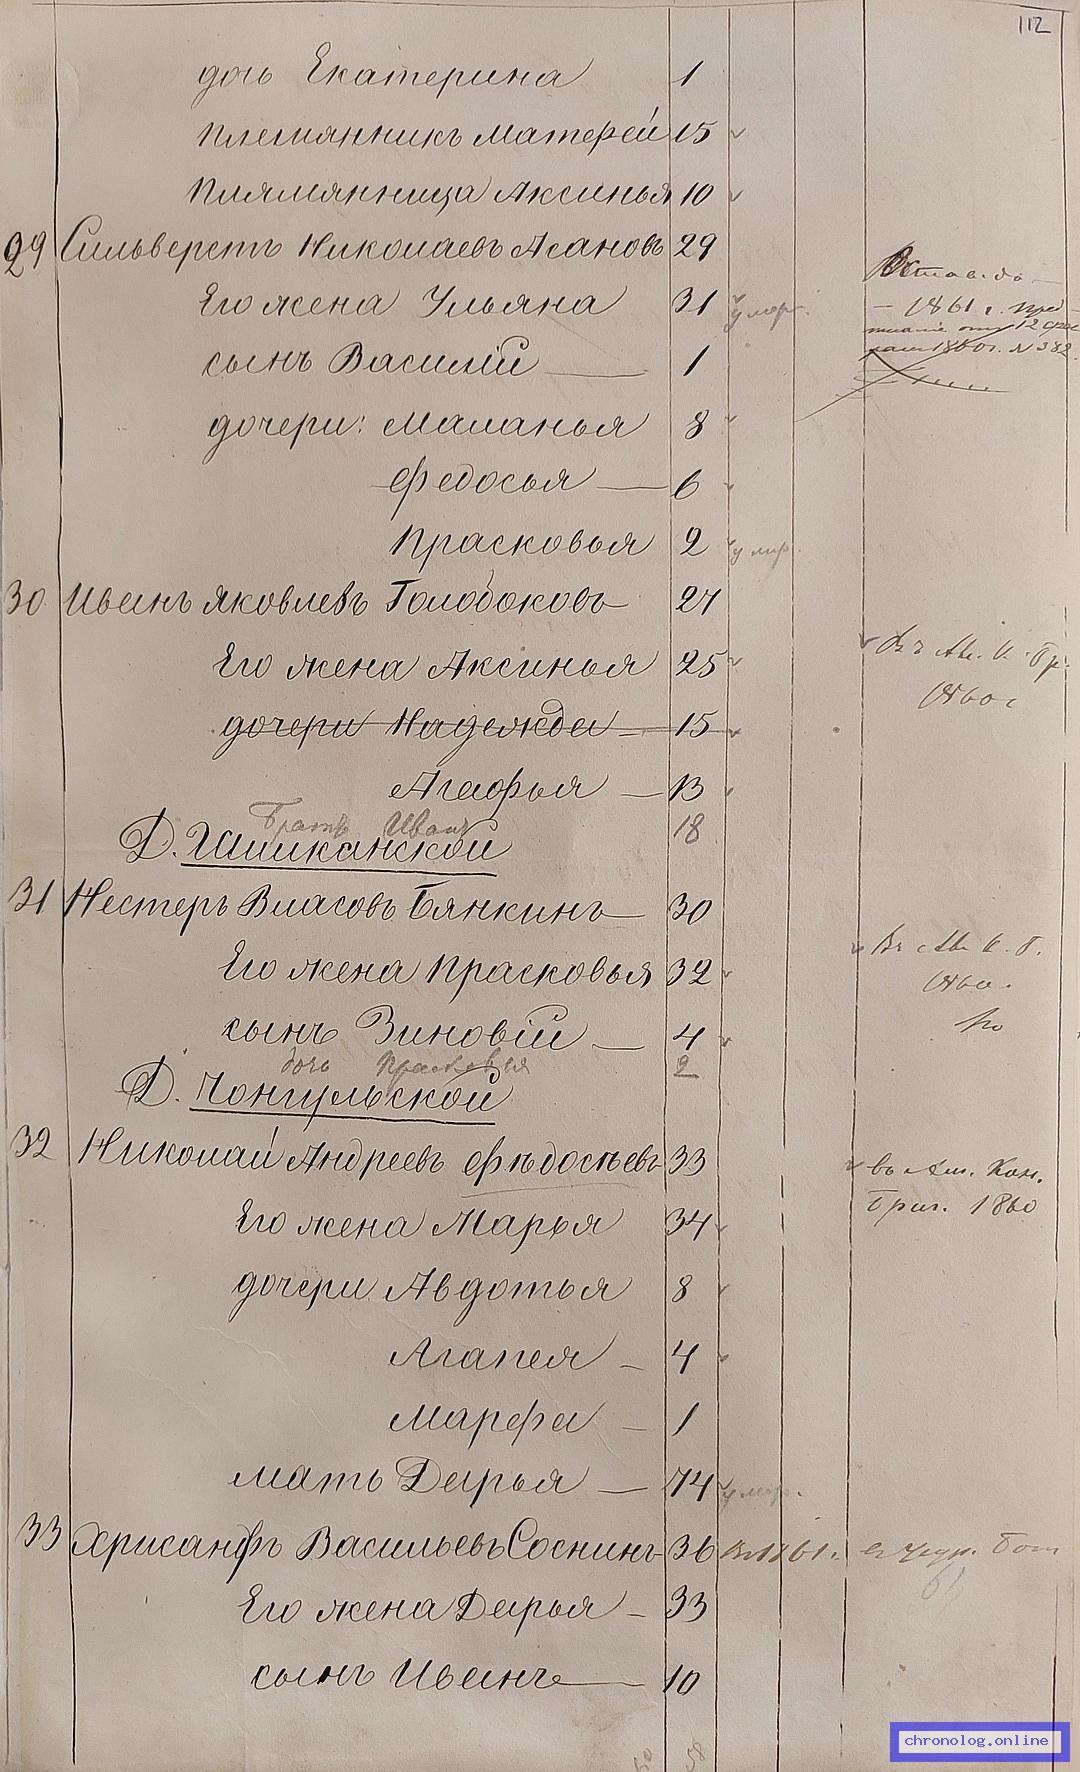 112
дочь Екатерина 1
Племянникъ Матфей 15
Плямянница Аксинья 10
29 Сильверстъ Николаевъ Асановъ 29
Его жена Ульяна 31 умер.
сынъ Василій 1
дочери: Маланья 8
Федосья 6
Прасковья 2 умер.
Остав. до
1861 г. пред
писаніе отъ 12
1860 г. № 382
30 Иванъ Яковлевъ Голобоковъ 27
Его жена Аксинья 25
Въ Ам. К. Бр.
1860 г
дочери Надежда 15
Агафья 13
Братъ Иванъ 18
Д. Шишканской
31 Нестеръ Власовъ Бянкинъ 30
Его жена Прасковья 32
Въ Ам. К. Б.
1860.
сынъ Зиновій 4
дочь Прасковья 2
Д. Чонгульской
32 Николай Андреевъ Фѣдосѣевъ 33
въ Ам. Кон.
Бриг. 1860
Его жена Марья 34
дочери Авдотья 8
Агапея 4
Марфа 1
мать Дарья 74 умер.
33 Хрисанфъ Васильевъ Соснинъ 36 В 1861 г. Бат
61
Его жена Дарья 33
сынъ Иванъ 10
50 58
chronolog.online